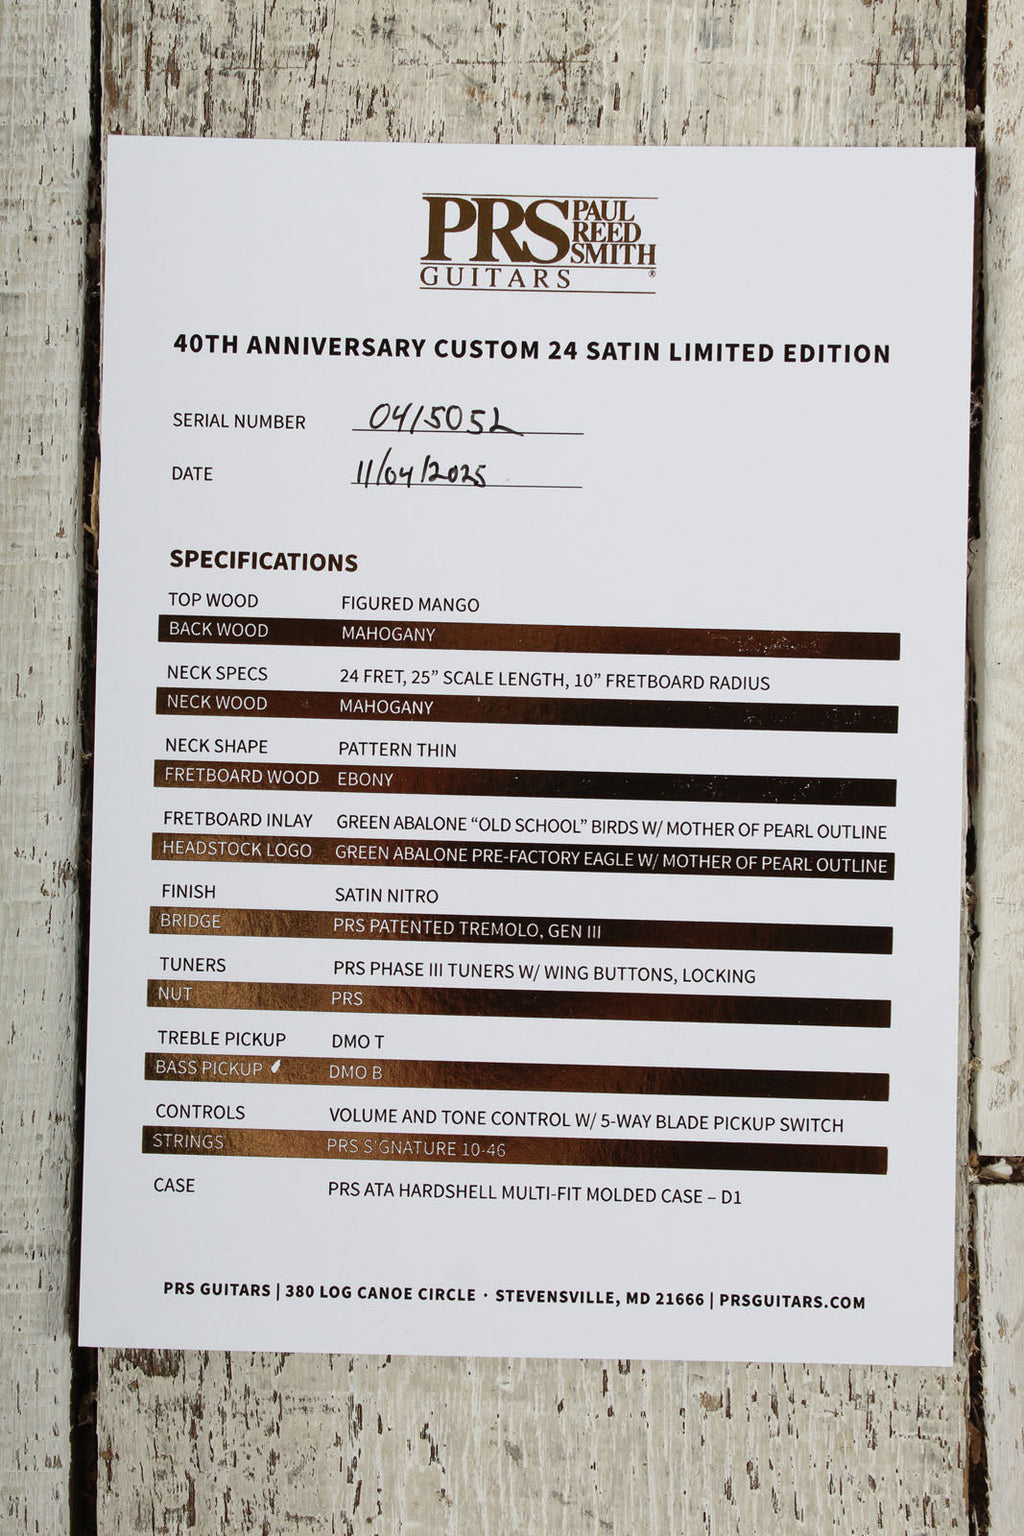 PRS PAUL
REED
SMITH
GUITARS ®
40TH ANNIVERSARY CUSTOM 24 SATIN LIMITED EDITION
SERIAL NUMBER 0415052
DATE 11/04/2025
SPECIFICATIONS
TOP WOOD FIGURED MANGO
BACK WOOD MAHOGANY
NECK SPECS 24 FRET, 25” SCALE LENGTH, 10” FRETBOARD RADIUS
NECK WOOD MAHOGANY
NECK SHAPE PATTERN THIN
FRETBOARD WOOD EBONY
FRETBOARD INLAY GREEN ABALONE “OLD SCHOOL” BIRDS W/ MOTHER OF PEARL OUTLINE
HEADSTOCK LOGO GREEN ABALONE PRE-FACTORY EAGLE W/ MOTHER OF PEARL OUTLINE
FINISH SATIN NITRO
BRIDGE PRS PATENTED TREMOLO, GEN III
TUNERS PRS PHASE III TUNERS W/ WING BUTTONS, LOCKING
NUT PRS
TREBLE PICKUP DMO T
BASS PICKUP DMO B
CONTROLS VOLUME AND TONE CONTROL W/ 5-WAY BLADE PICKUP SWITCH
STRINGS PRS SIGNATURE 10-46
CASE PRS ATA HARDSHELL MULTI-FIT MOLDED CASE – D1
PRS GUITARS | 380 LOG CANOE CIRCLE · STEVENSVILLE, MD 21666 | PRSGUITARS.COM